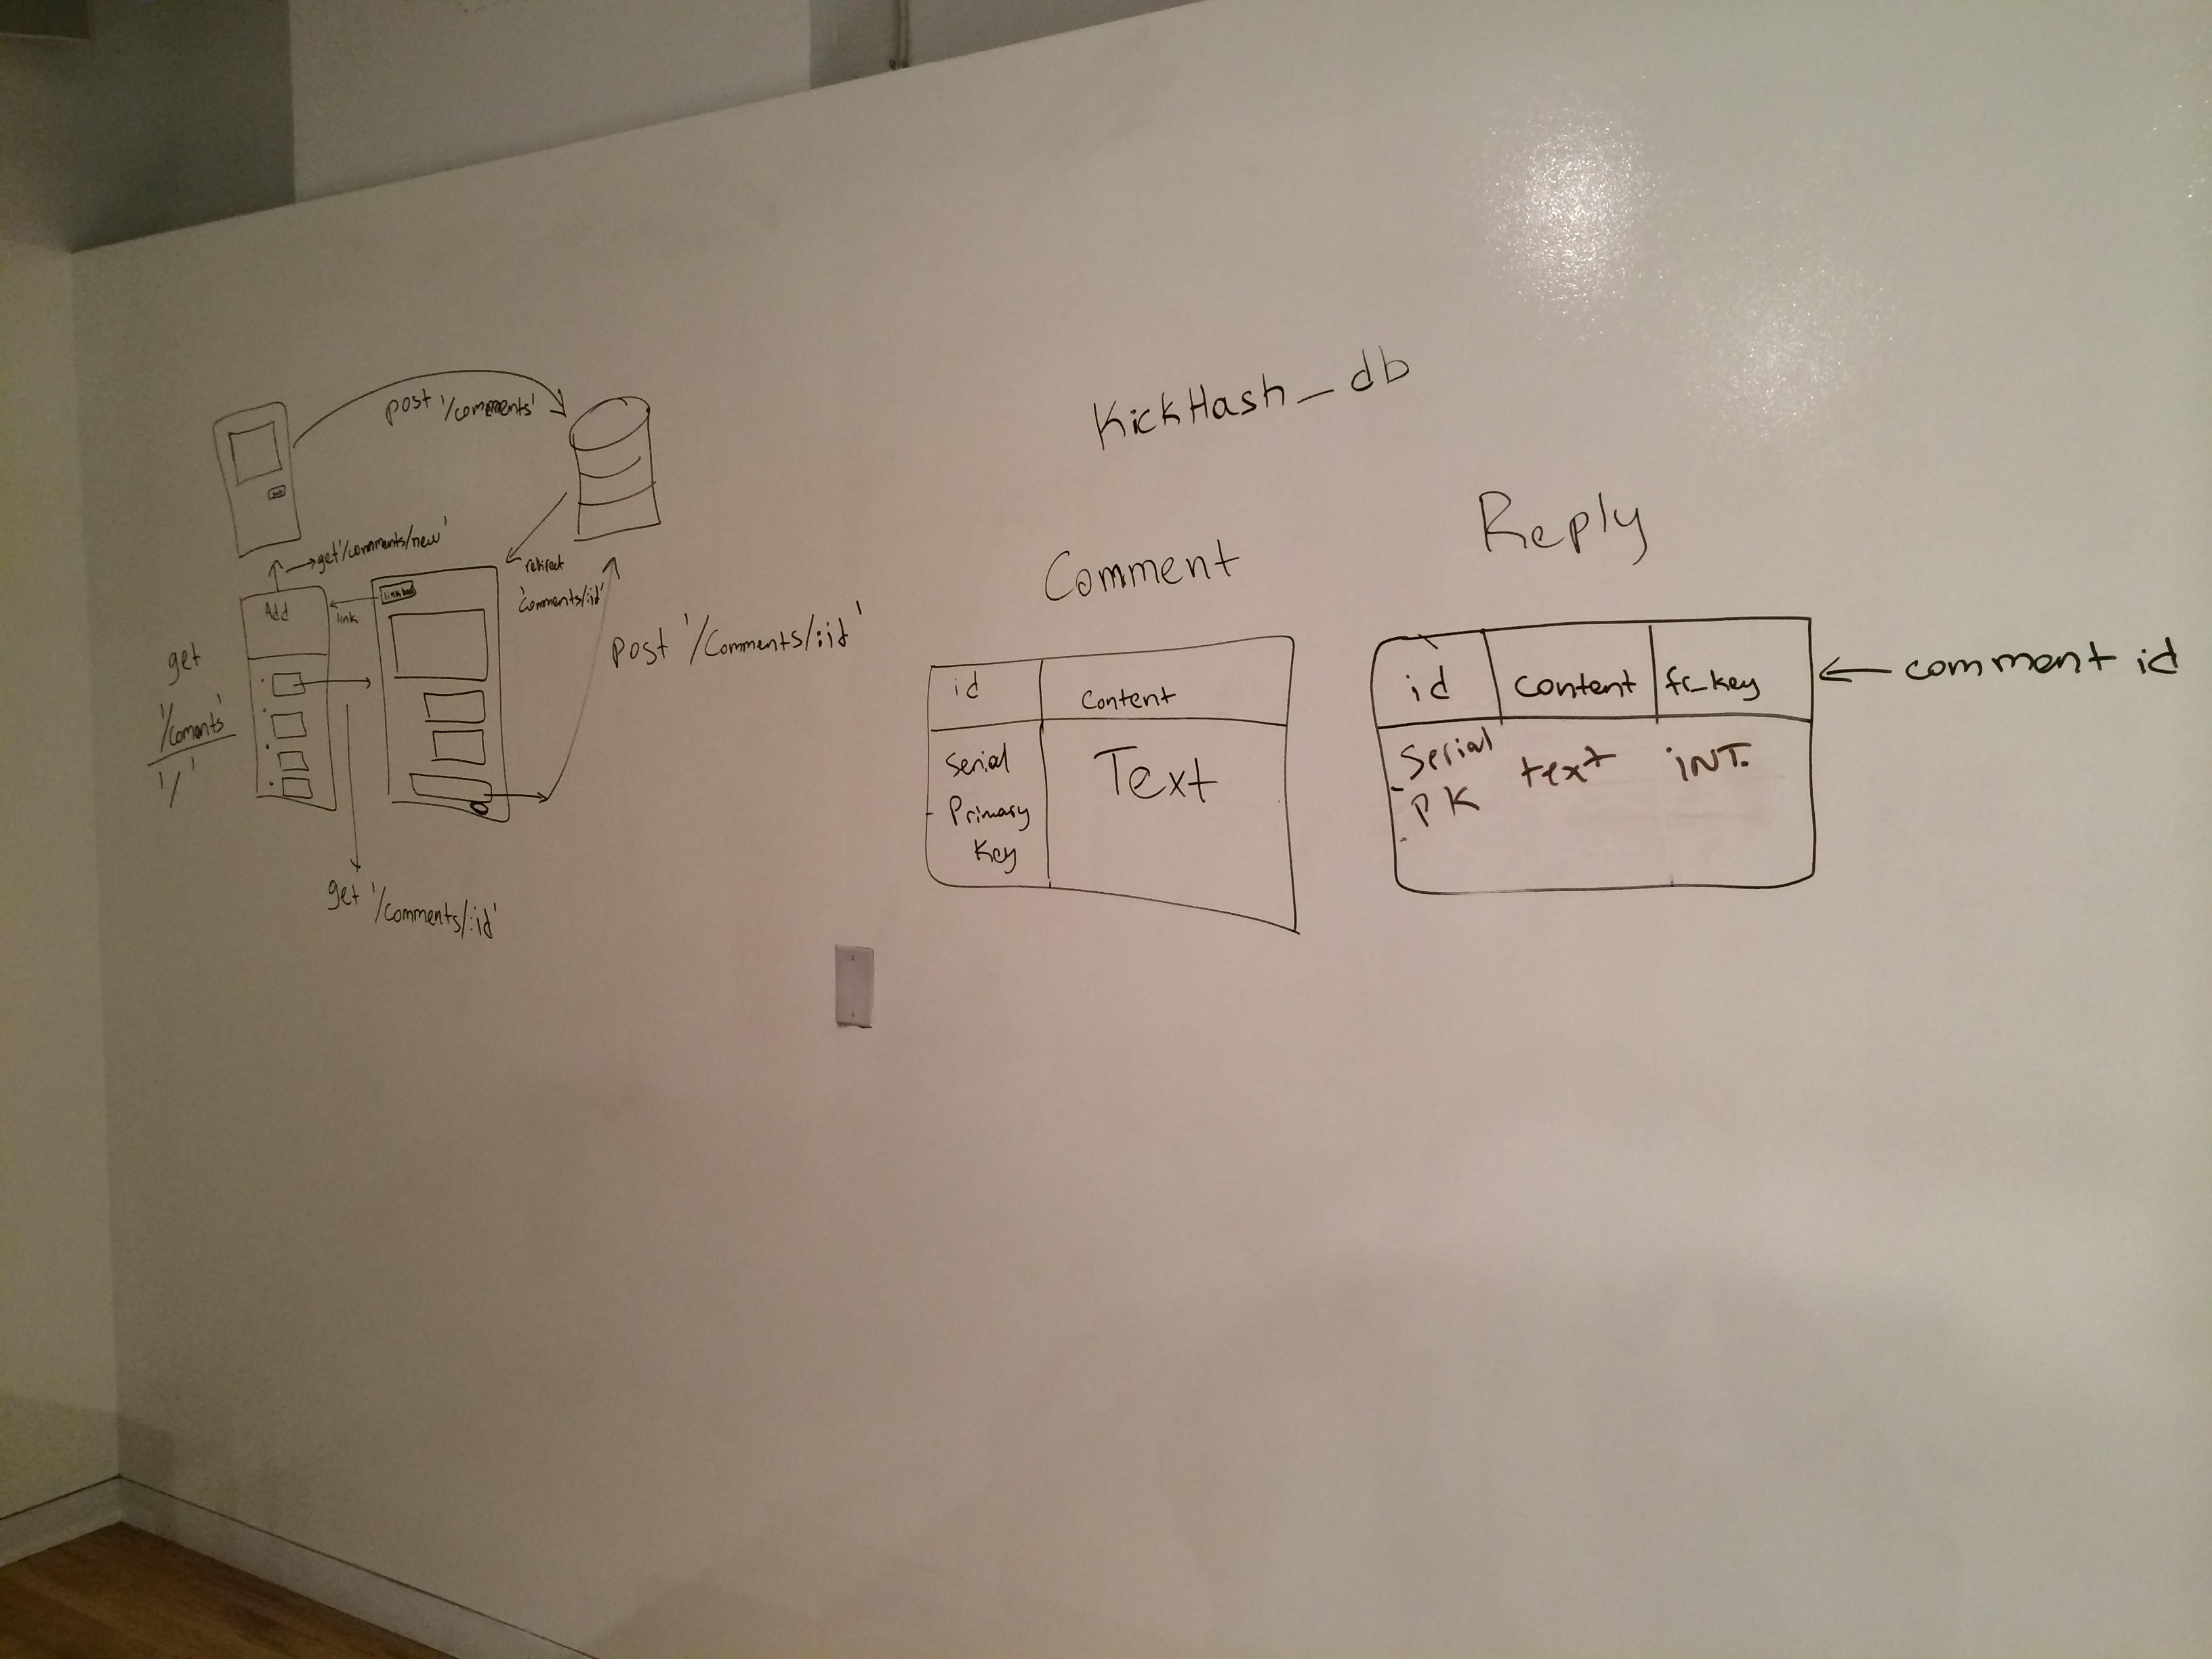 post '/comments'
get '/comments/new'
Add
link
get
'/coments'
'/'
get '/comments/:id'
'comments/:id'
post '/Comments/:id'
KickHash_db
Comment
id
Content
Serial
Primary
Key
Text
Reply
id
content
fr_key
Serial
PK
text
iNT.
comment id